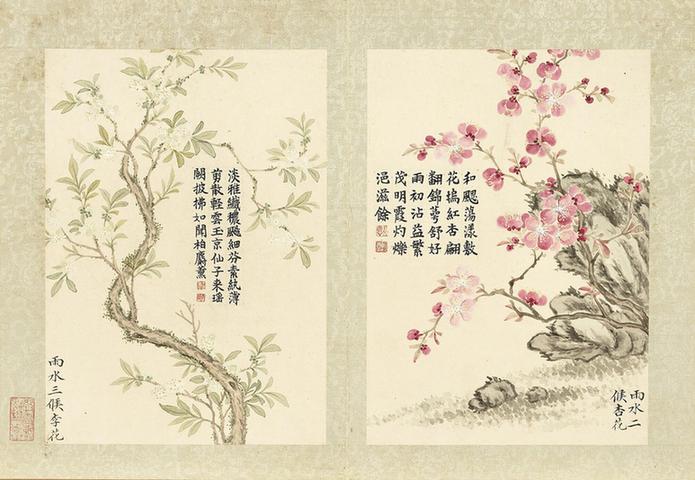 和颸蕩漾敷
花塢紅杏翩
翻錦萼舒好
雨初沾益繁
茂明霞灼爍
浥滋餘
雨水二
候杏花
淡雅纖穠颺細芬素紈薄
剪散輕雲玉京仙子來瑤
闕披拂如聞柏麝薰
雨水三候李花